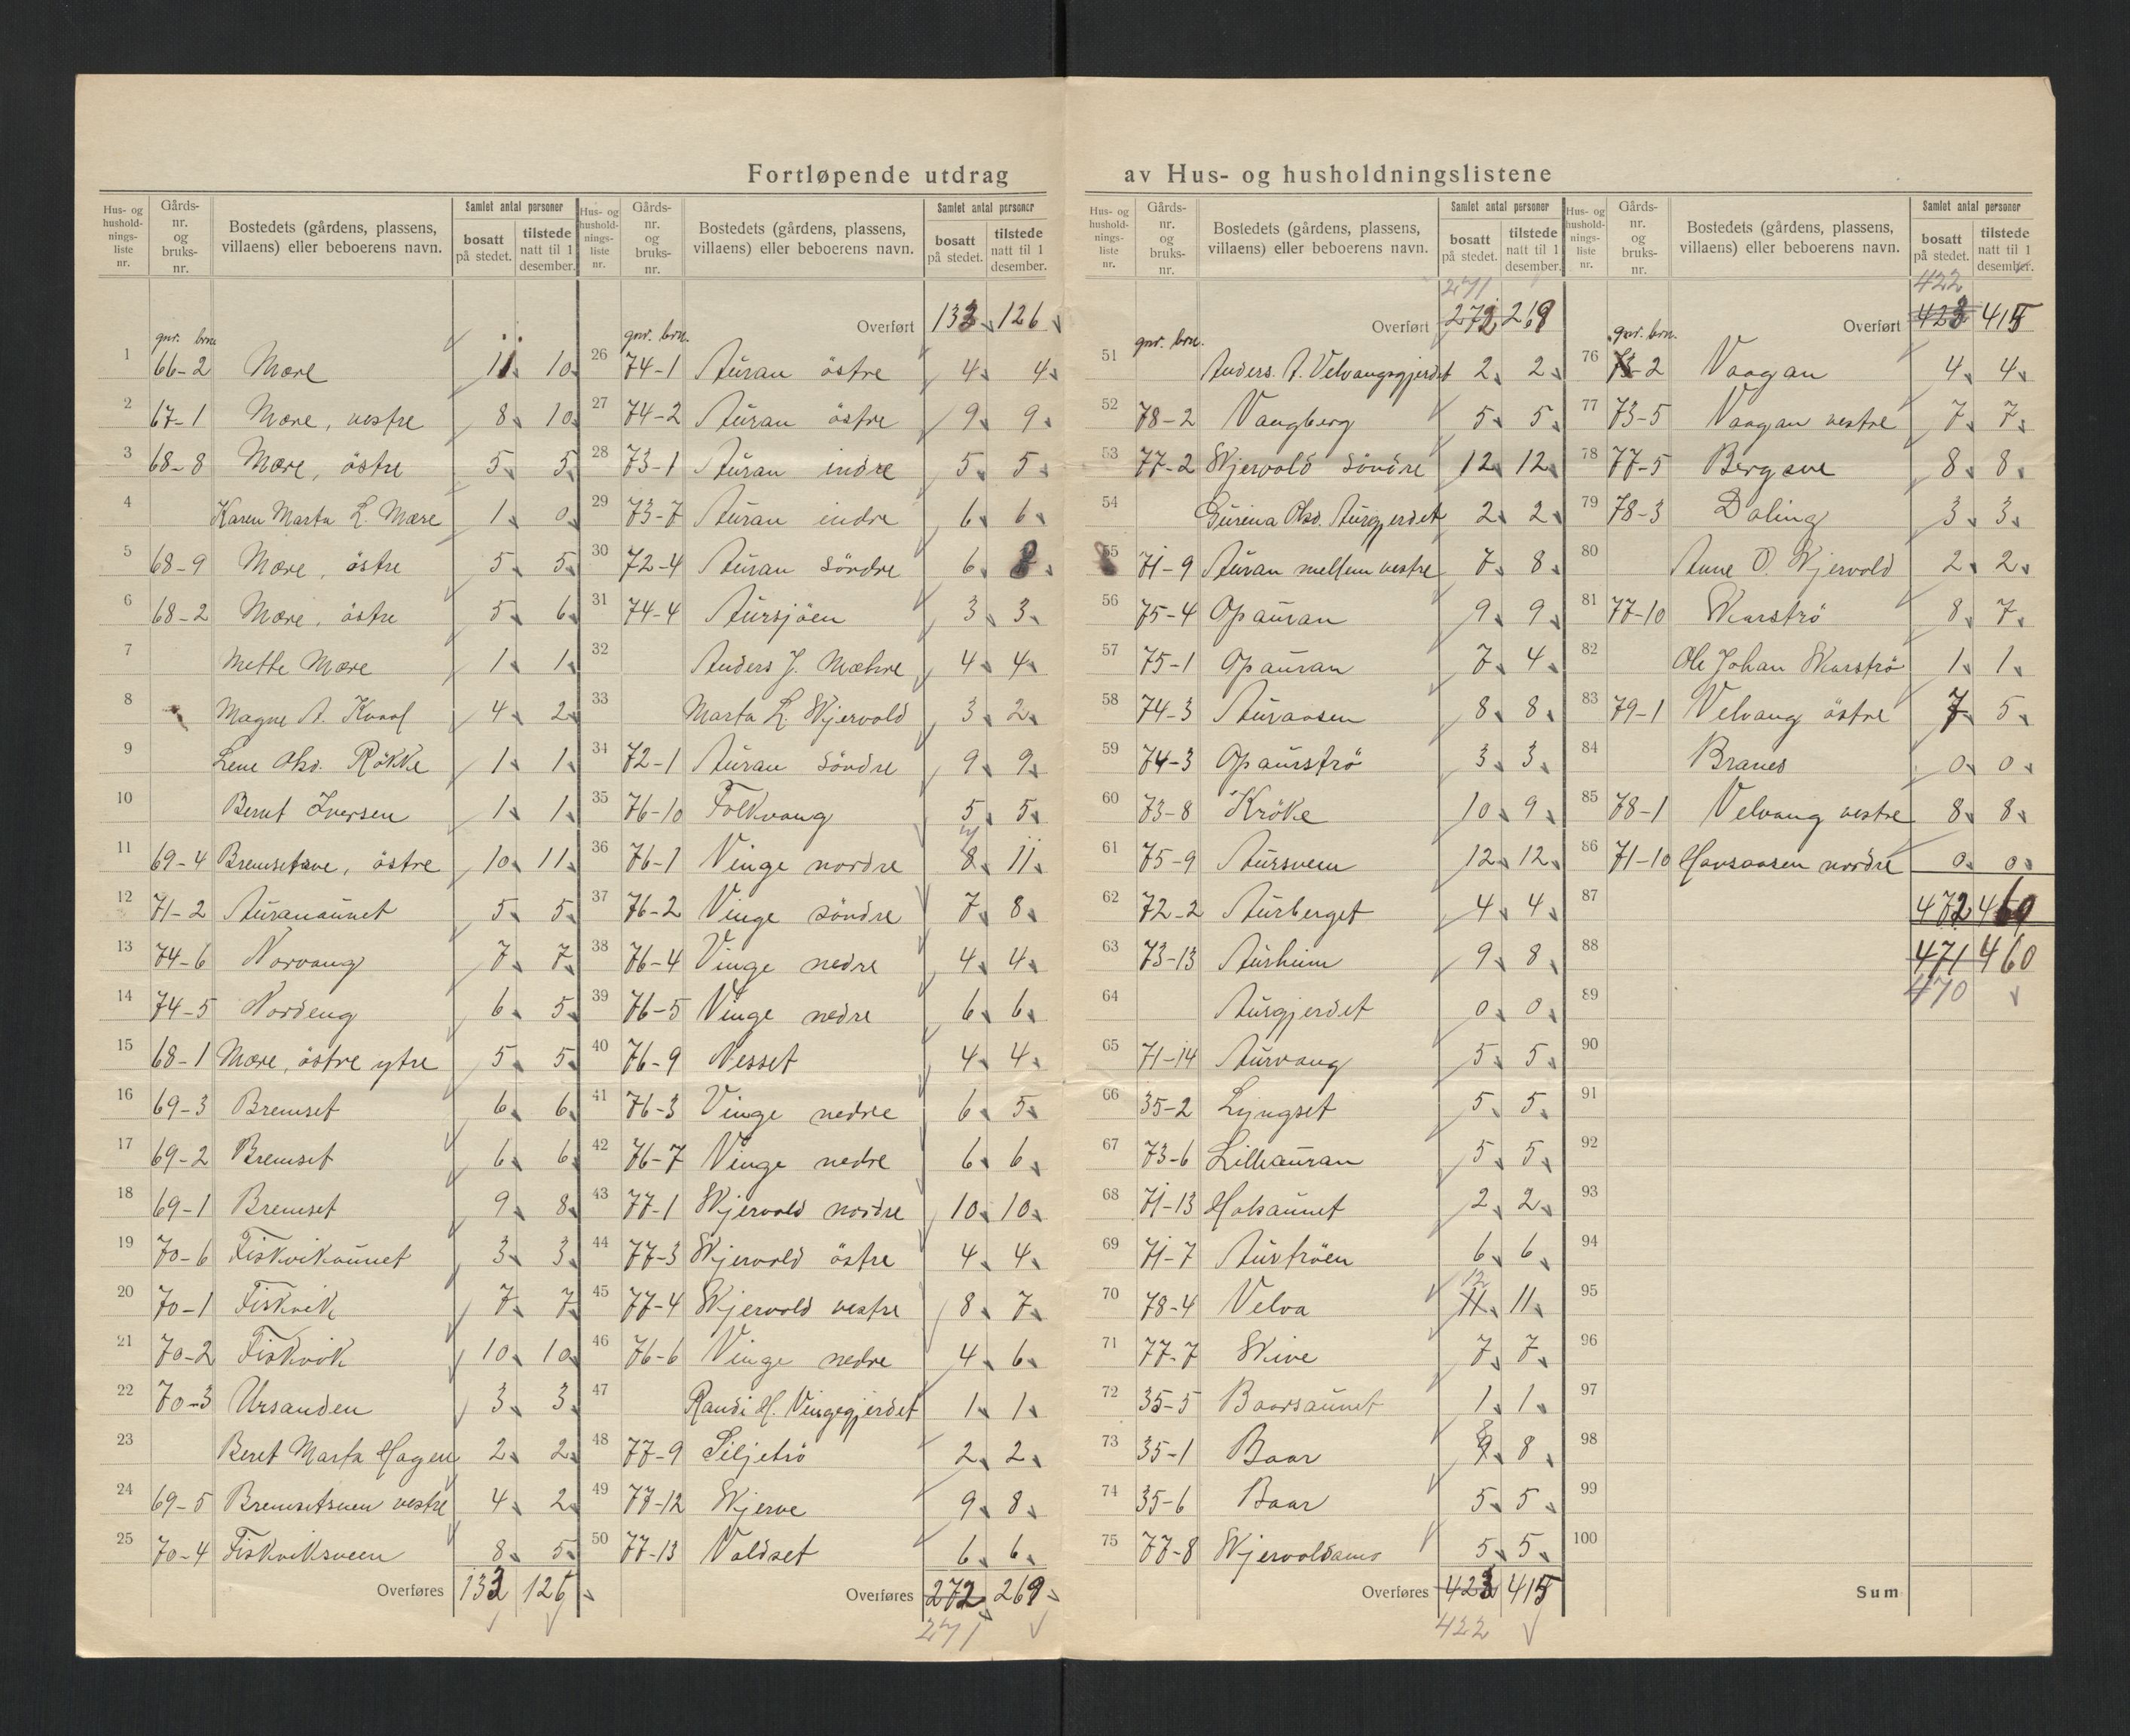 Fortløpende utdrag av Hus- og husholdningslistene
Hus- og husholdningsliste nr. | Gårds- nr. og bruks- nr. | Bostedets (gårdens, plassens, villaens) eller beboerens navn. | Samlet antal personer | bosatt på stedet. | tilstede natt til 1 desember.
gnr. brn.
1 66-2 Mære 11 10
2 67-1 Mære, vestre 8 10
3 68-8 Mære, östre 5 5
4 Karen Marta L. Mære 1 0
5 68-9 Mære, östre 5 5
6 68-2 Mære, östre 5 6
7 Mette Mære 1 1
8 Magne A. 4 2
9 Lene Olsd. Rökke 1 1
10 Bernt Iversen 1 1
11 69-4 östre 10 11
12 71-2 Auranaunet 5 5
13 74-6 Norvang 7 7
14 74-5 Nordeng 6 5
15 68-1 Mære, östre ytre 5 5
16 69-3 Bremset 6 6
17 69-2 Bremset 6 6
18 69-1 Bremset 9 8
19 70-6 Fiskvikaunet 3 3
20 70-1 Fiskvik 7 7
21 70-2 Fiskvik 10 10
22 70-3 Ursanden 3 3
23 Beret Marta Hagen 2 2
24 69-5 Bremsetsveen vestre 4 2
25 70-4 Fiskviksveen 8 5
Overføres 133 126
Hus- og husholdningsliste nr. | Gårds- nr. og bruks- nr. | Bostedets (gårdens, plassens, villaens) eller beboerens navn. | Samlet antal personer | bosatt på stedet. | tilstede natt til 1 desember.
gnr. brn. Overført 133 126
26 74-1 Auran östre 4 4
27 74-2 Auran östre 9 9
28 73-1 Auran indre 5 5
29 73-7 Auran indre 6 6
30 72-4 Auran söndre 6 8
31 74-4 Aursjöen 3 3
32 Anders J. Mæhre 4 4
33 Marta L. Skjervold 3 2
34 72-1 Auran söndre 9 9
35 76-10 Folkvang 5 5
36 76-1 Vinge nordre 8 11
37 76-2 Vinge söndre 7 8
38 76-4 Vinge nedre 4 4
39 76-5 Vinge nedre 6 6
40 76-9 Nesset 4 4
41 76-3 Vinge nedre 6 5
42 76-7 Vinge nedre 6 6
43 77-1 Skjervold nordre 10 10
44 77-3 Skjervold östre 4 4
45 77-4 Skjervold vestre 8 7
46 76-6 Vinge nedre 4 6
47 Randi H. Vingegjerdet 1 1
48 77-9 Siljetrö 2 2
49 77-12 Skjerve 9 8
50 77-13 Valdset 6 6
Overføres 272 269
271
Hus- og husholdningsliste nr. | Gårds- nr. og bruks- nr. | Bostedets (gårdens, plassens, villaens) eller beboerens navn. | Samlet antal personer | bosatt på stedet. | tilstede natt til 1 desember.
271
gnr. brn. Overført 272 269
51 Anders A. Velvangsgjerdet 2 2
52 78-2 Vangberg 5 5
53 77-2 Skjervold söndre 12 12
54 Gurina Olsd. Aurgjerdet 2 2
55 71-9 Auran mellem vestre 7 8
56 75-4 Opauran 9 9
57 75-1 Opauran 7 4
58 74-3 Auraasen 8 8
59 74-3 Opaurströ 3 3
60 73-8 Kröke 10 9
61 75-9 Aursveen 12 12
62 72-2 Aurberget 4 4
63 73-13 Aurheim 9 8
64 Aurgjerdet 0 0
65 71-14 Aurvang 5 5
66 35-2 Lyngset 5 5
67 73-6 Lilleauran 5 5
68 71-13 2 2
69 71-7 Aurtröen 6 6
12
70 78-4 Velva 11 11
71 77-7 Skive 7 7
72 35-5 Baarsaunet 1 1
8
73 35-1 Baar 9 8
74 35-6 Baar 5 5
75 77-8 5 5
Overføres 423 415
422
Hus- og husholdningsliste nr. | Gårds- nr. og bruks- nr. | Bostedets (gårdens, plassens, villaens) eller beboerens navn. | Samlet antal personer | bosatt på stedet. | tilstede natt til 1 desember.
422
gnr. brn. Overført 423 415
76 Vaagan 4 4
77 73-5 Vaagan vestre 7 7
78 77-5 8 8
79 78-3 Daling 3 3
80 Anne O. Skjervold 2 2
81 77-10 Skarströ 8 7
82 Ole Johan Skarströ 1 1
83 79-1 Velvang östre 7 5
84 Branes 0 0
85 78-1 Velvang vestre 8 8
86 71-10 Havsaasen nordre 0 0
87 472 460
88 471 460
89 470
90
91
92
93
94
95
96
97
98
99
100
Sum